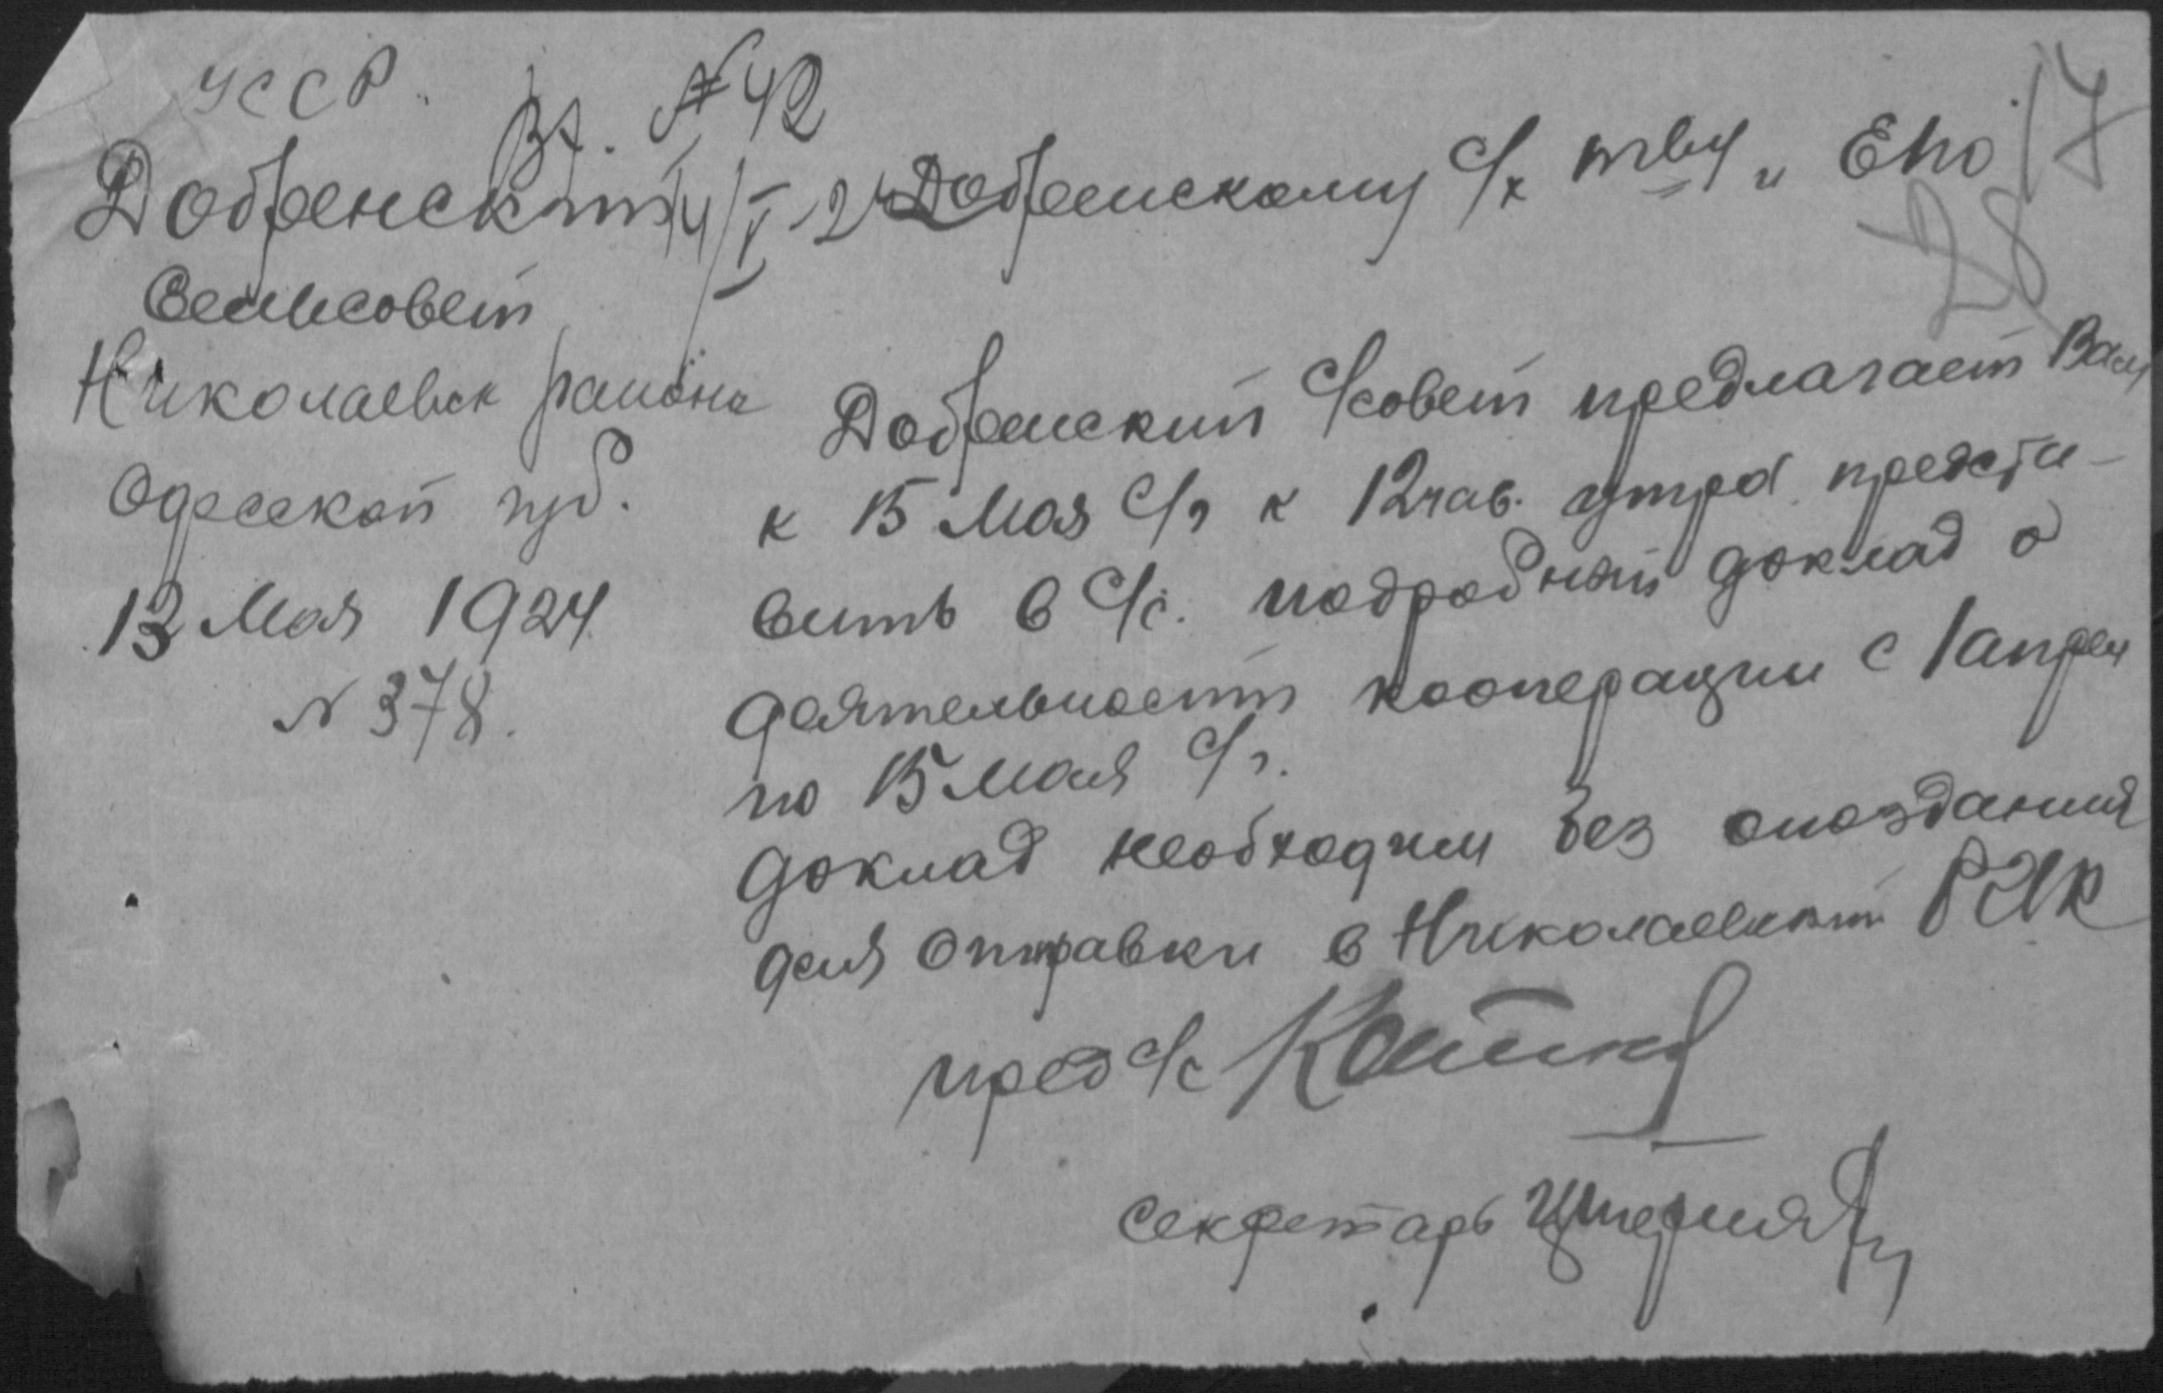 УССР.
Вх. №42
14/V-24
Добренский
Сельсовет
Николаевск района
Одесской губ.
13 Мая 1924
N 378.
17
28
Добренскому С/х тву „ЕПО
Добренский С/совет предлагает Вам
к 15 Мая С/г к 12 час. утра предста-
вить в С/с. подробный доклад о
деятельности кооперации с 1 апрел
по 15 Мая С/г.
Доклад необходим без опоздания
для отправки в Николаевский РИК
пред С/с
Секретарь